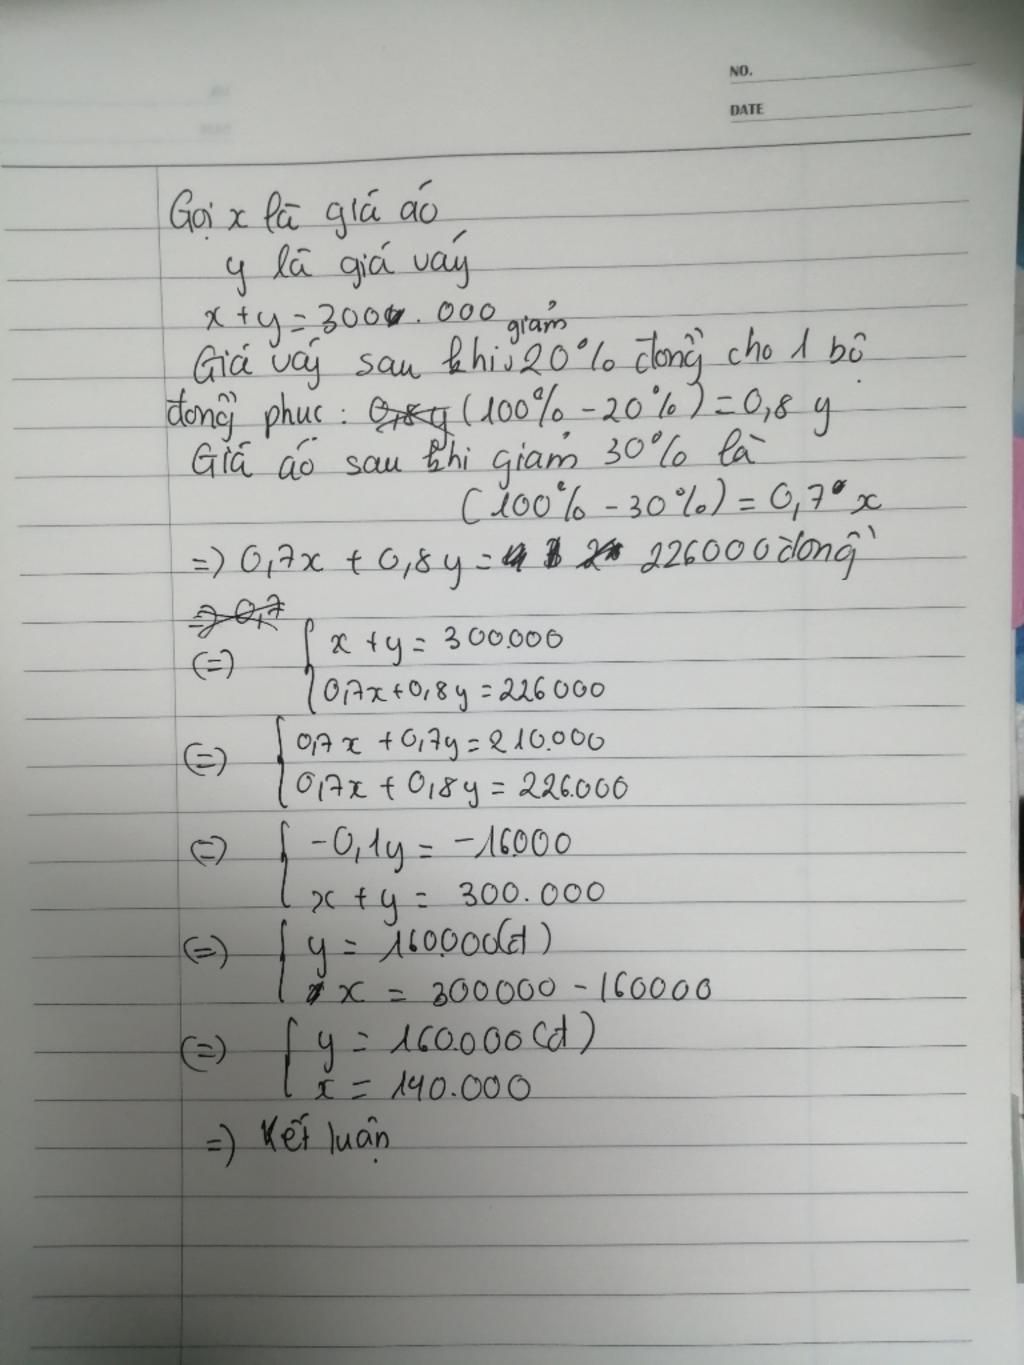 NO.
DATE
Gọi x là giá áo
y là giá váy
x+y=300.000
Giá váy sau khi giảm 20% đồng cho 1 bộ
đồng phục: 0,8y (100% - 20%) = 0,8 y
Giá áo sau khi giảm 30% là
(100% - 30%) = 0,7 x
=) 0,7x + 0,8y = 226000 đồng
=> 0,7
(=) { x + y = 300.000
0,7x+0,8y = 226000
(=) { 0,7x + 0,7y = 210.000
0,7x + 0,8y = 226.000
(=) { -0,1y = -16000
x + y = 300.000
(=) { y = 160.000(đ)
x = 300000 - 160000
(=) { y = 160.000(đ)
x = 140.000
=) Kết luận